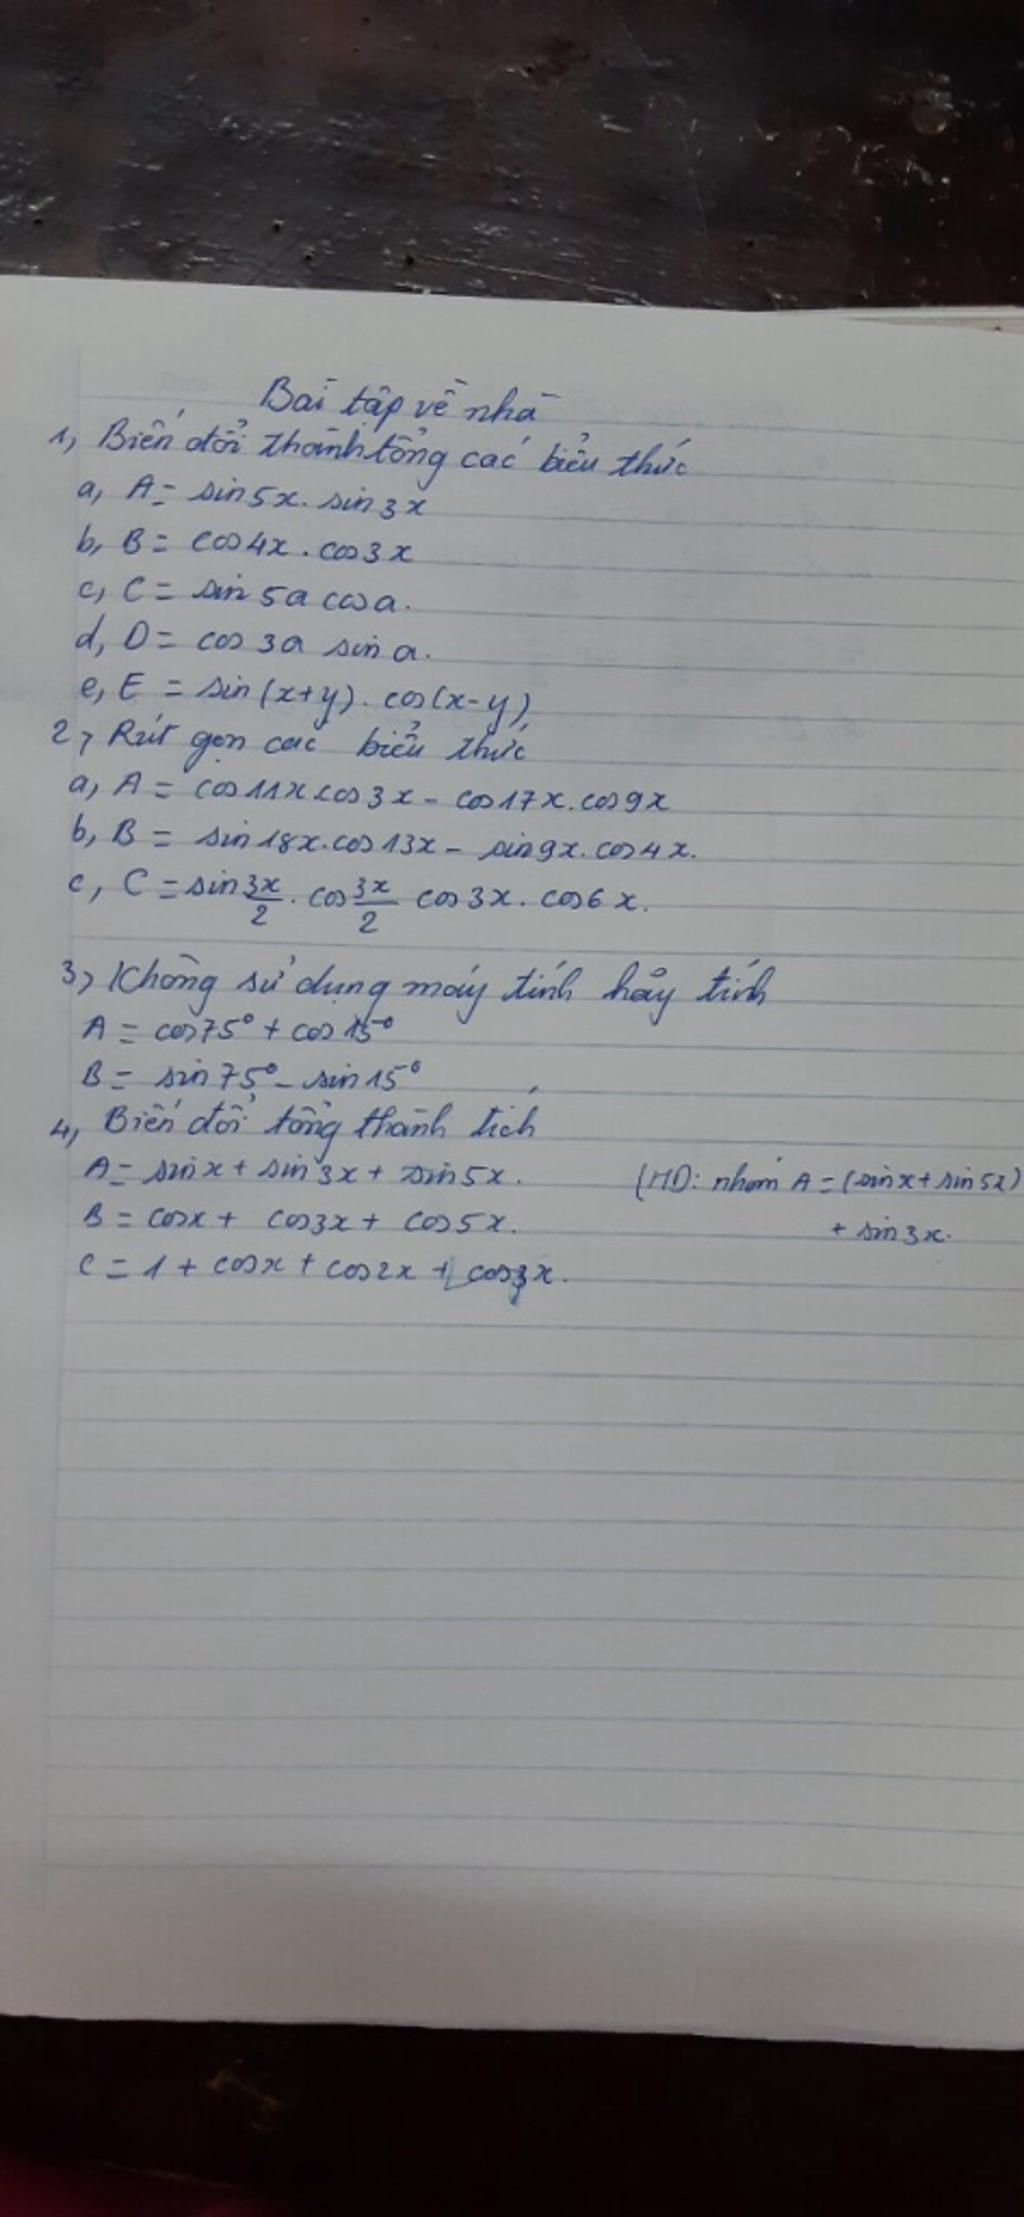 Bài tập về nhà
1, Biến đổi thành tổng các biểu thức
a, A = sin5x. sin3x
b, B = cos4x. cos3x
c, C = sin 5a cosa.
d, D = cos 3a sin a.
e, E = sin(x+y). cos(x-y)
2, Rút gọn các biểu thức
a, A = cos11x.cos3x - cos17x.cos9x
b, B = sin18x.cos13x - sin9x.cos4x.
c, C = sin 3x/2. cos 3x/2 cos3x. cos6x.
3, Không sử dụng máy tính hãy tính
A = cos75° + cos15°
B = sin75° - sin15°
4, Biến đổi tổng thành tích
A = sinx + sin3x + sin5x. (HD: nhóm A = (sinx + sin5x)
+ sin3x.
B = cosx + cos3x + cos5x.
C = 1 + cosx + cos2x + cos3x.